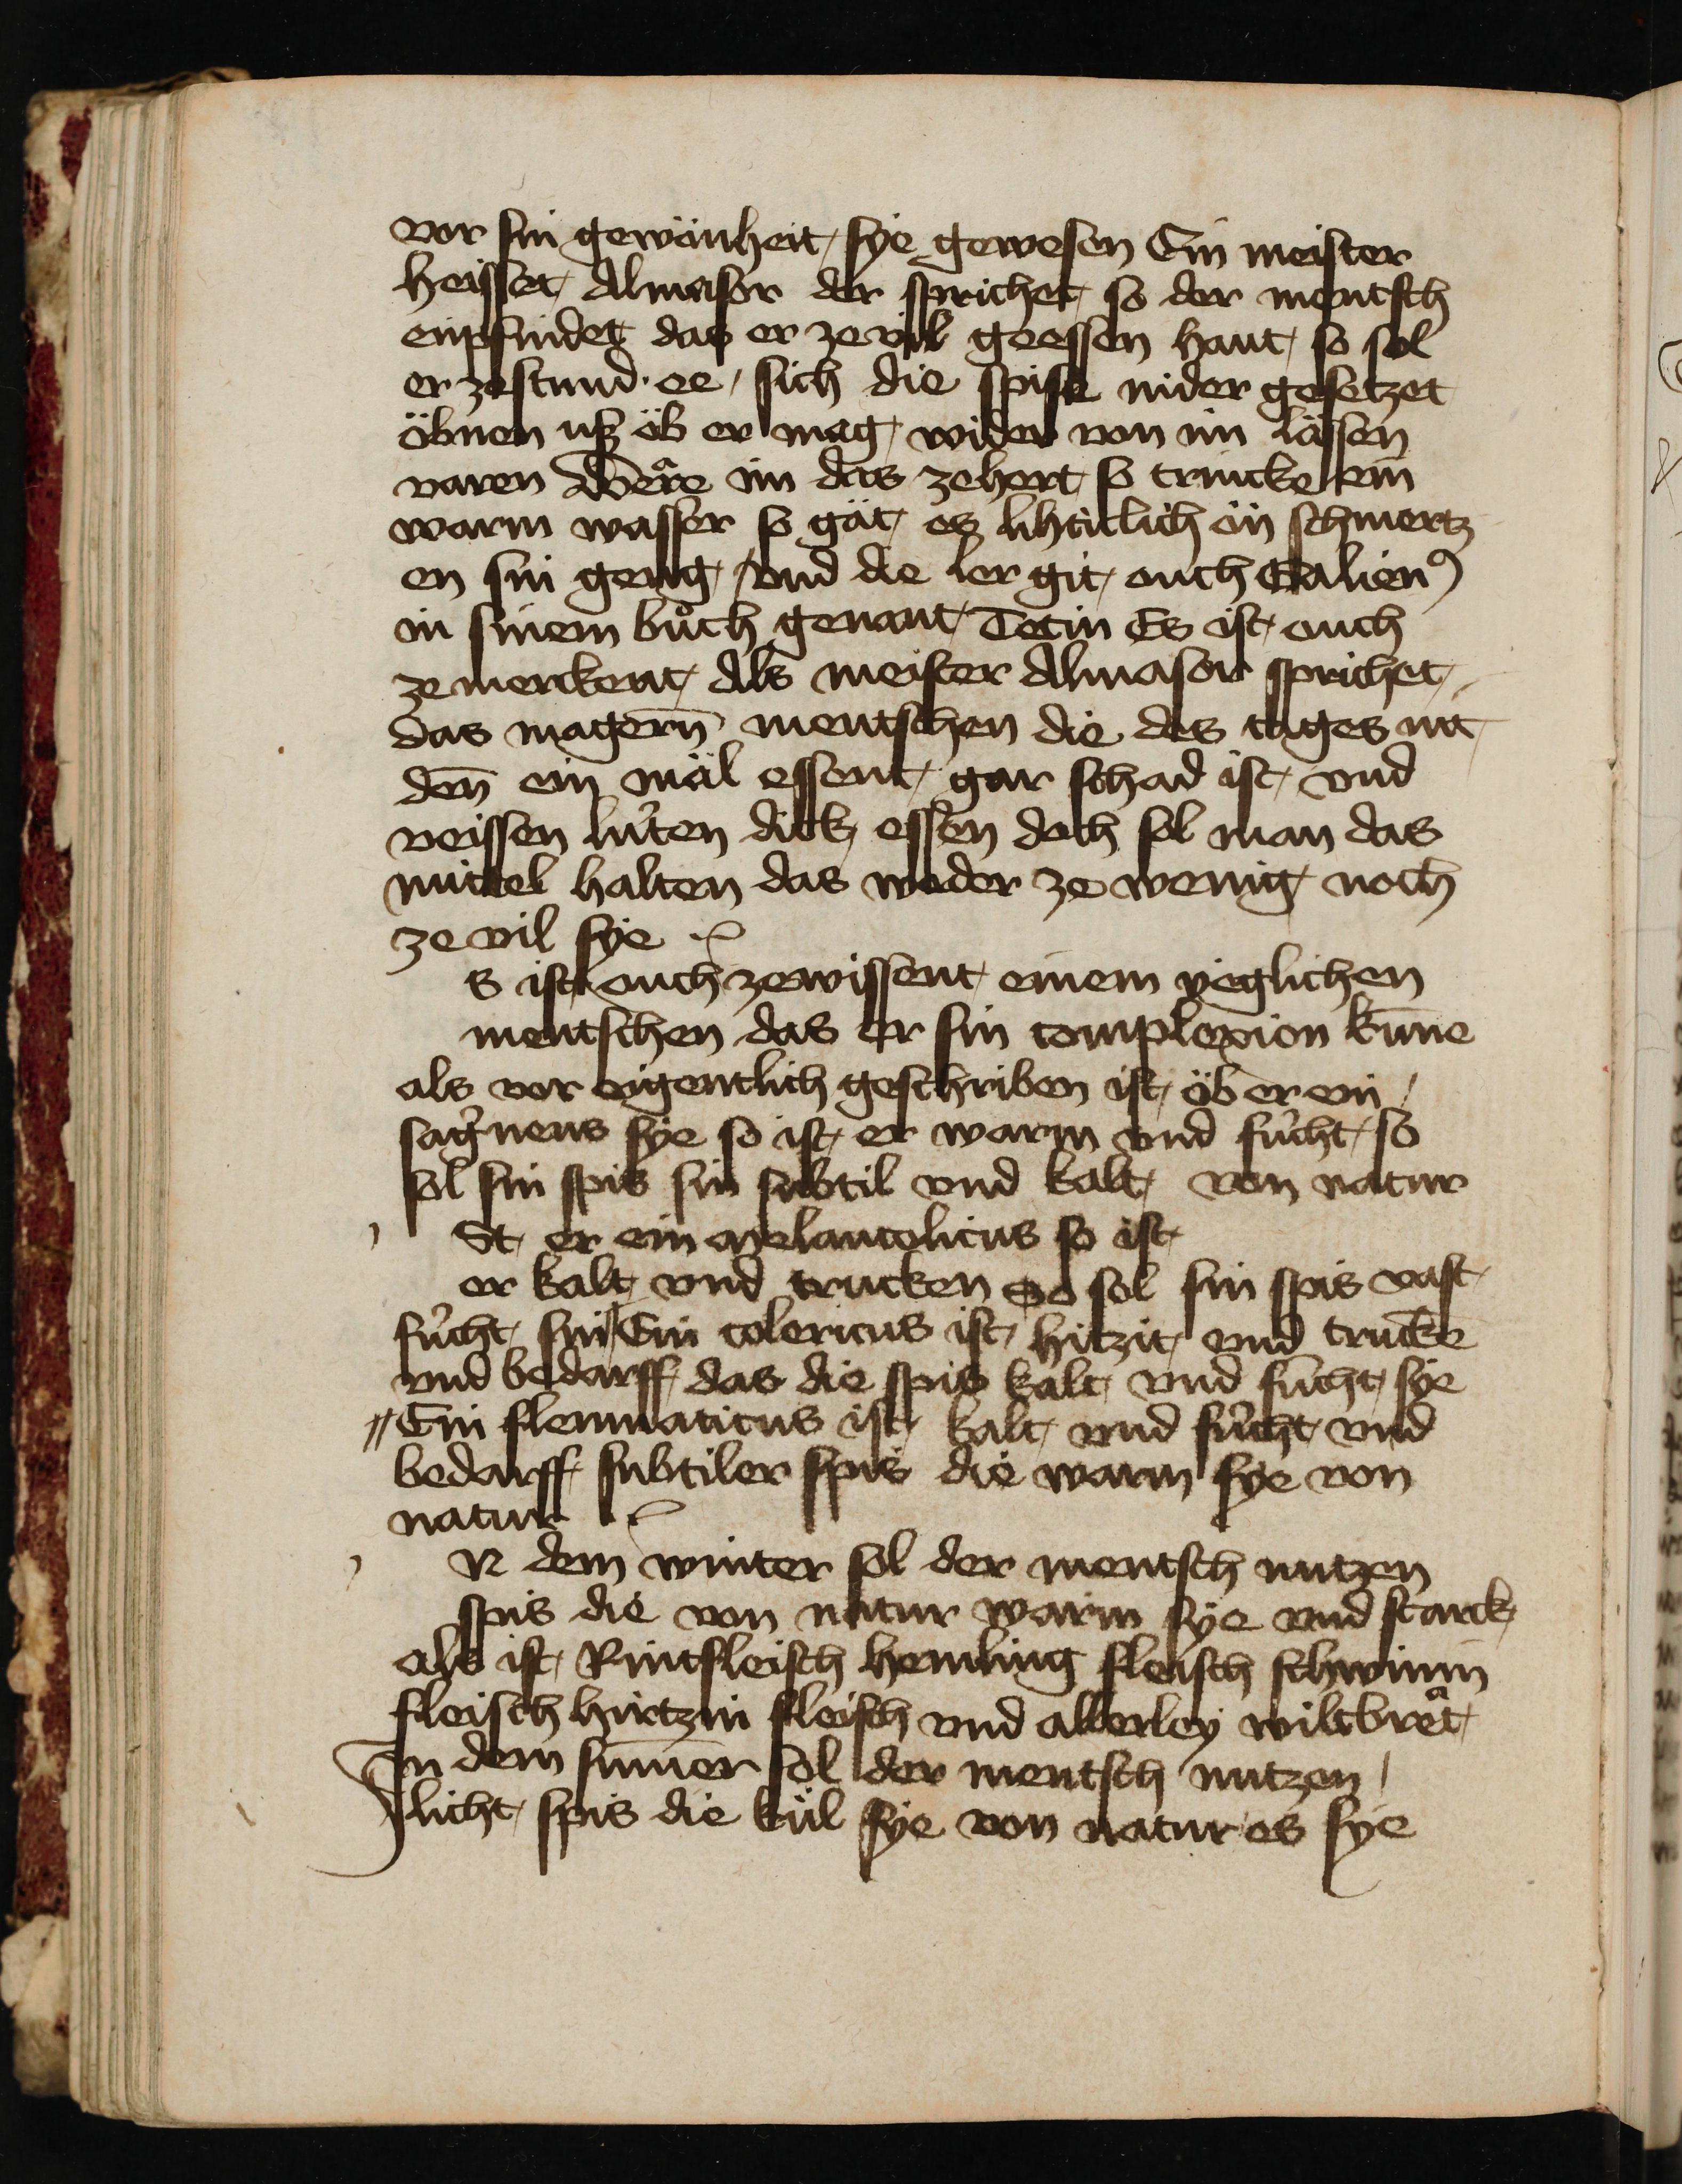 vor sin gewönheit sÿe gewesen Ein meister
heisset Almasor der sprichet so der mentsch
enpfindet das er ze vil geessen haut so sol
er ze stund ee sich die spise nider gesetzet
öbnen uß öb er mag wider von im lässen
varen Wêre im das ze hert so trincke ein
warm wasser so gät es lihticlich ön schmertz
en sin geng vnd die ler git ouch Galienꝰ
in sinem bůch genant Tetin Es ist ouch
ze merckent Als meister Almasor sprichet
das magern̄ mentschen die des tages nit
den̄ ein mäl essent gar schad ist vnd
veissen lüten dick essen doch sol man das
mittel halten das weder ze wenig noch
ze vil sÿe
s ist ouch ze wissent einem yeglichen
mentschen das er sin complexion kūne
als vor eigentlich geschriben ist öb er ein
sagwneus sÿe so ist er warm vnd fücht so
sol sin spis sin subtil vnd kalt von natur
St er ein melancolicus so ist
er kalt vnd trucken So sol sin spis vast
fücht sin Ein colericus ist hitzit vnd truckē
vnd bedarff das die spis kalt vnd fücht sÿe
// Ein flenmaticus ist kalt vnd fücht vnd
bedarff subtiler spis die warm sÿe von
natur
N dem winter sol der mentsch nutzen
spis die von natur warm sÿe vnd starck
als ist Rintfleisch hemling fleisch schwinin
fleisch hirtzin fleisch vnd allerley wiltbrêt
In dem sum̄er sol der mentsch nutzen
licht spis die kül sÿe von natur es sÿe